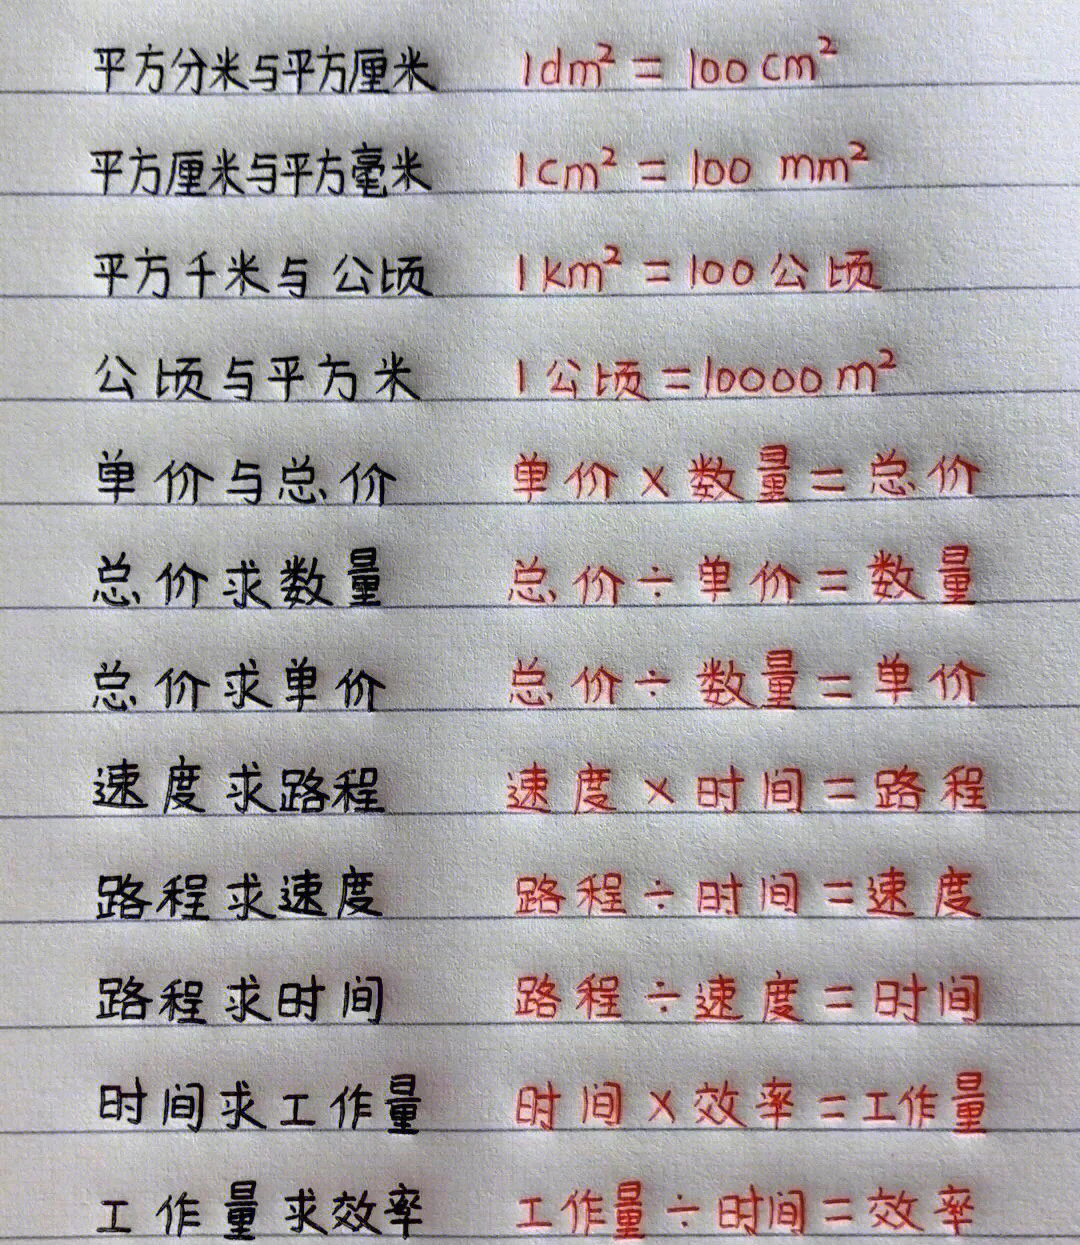 平方分米与平方厘米 1dm² = 100cm²
平方厘米与平方毫米 1cm² = 100 mm²
平方千米与公顷 1km² = 100公顷
公顷与平方米 1公顷=10000m²
单价与总价 单价×数量=总价
总价求数量 总价÷单价=数量
总价求单价 总价÷数量=单价
速度求路程 速度×时间=路程
路程求速度 路程÷时间=速度
路程求时间 路程÷速度=时间
时间求工作量 时间×效率=工作量
工作量求效率 工作量÷时间=效率